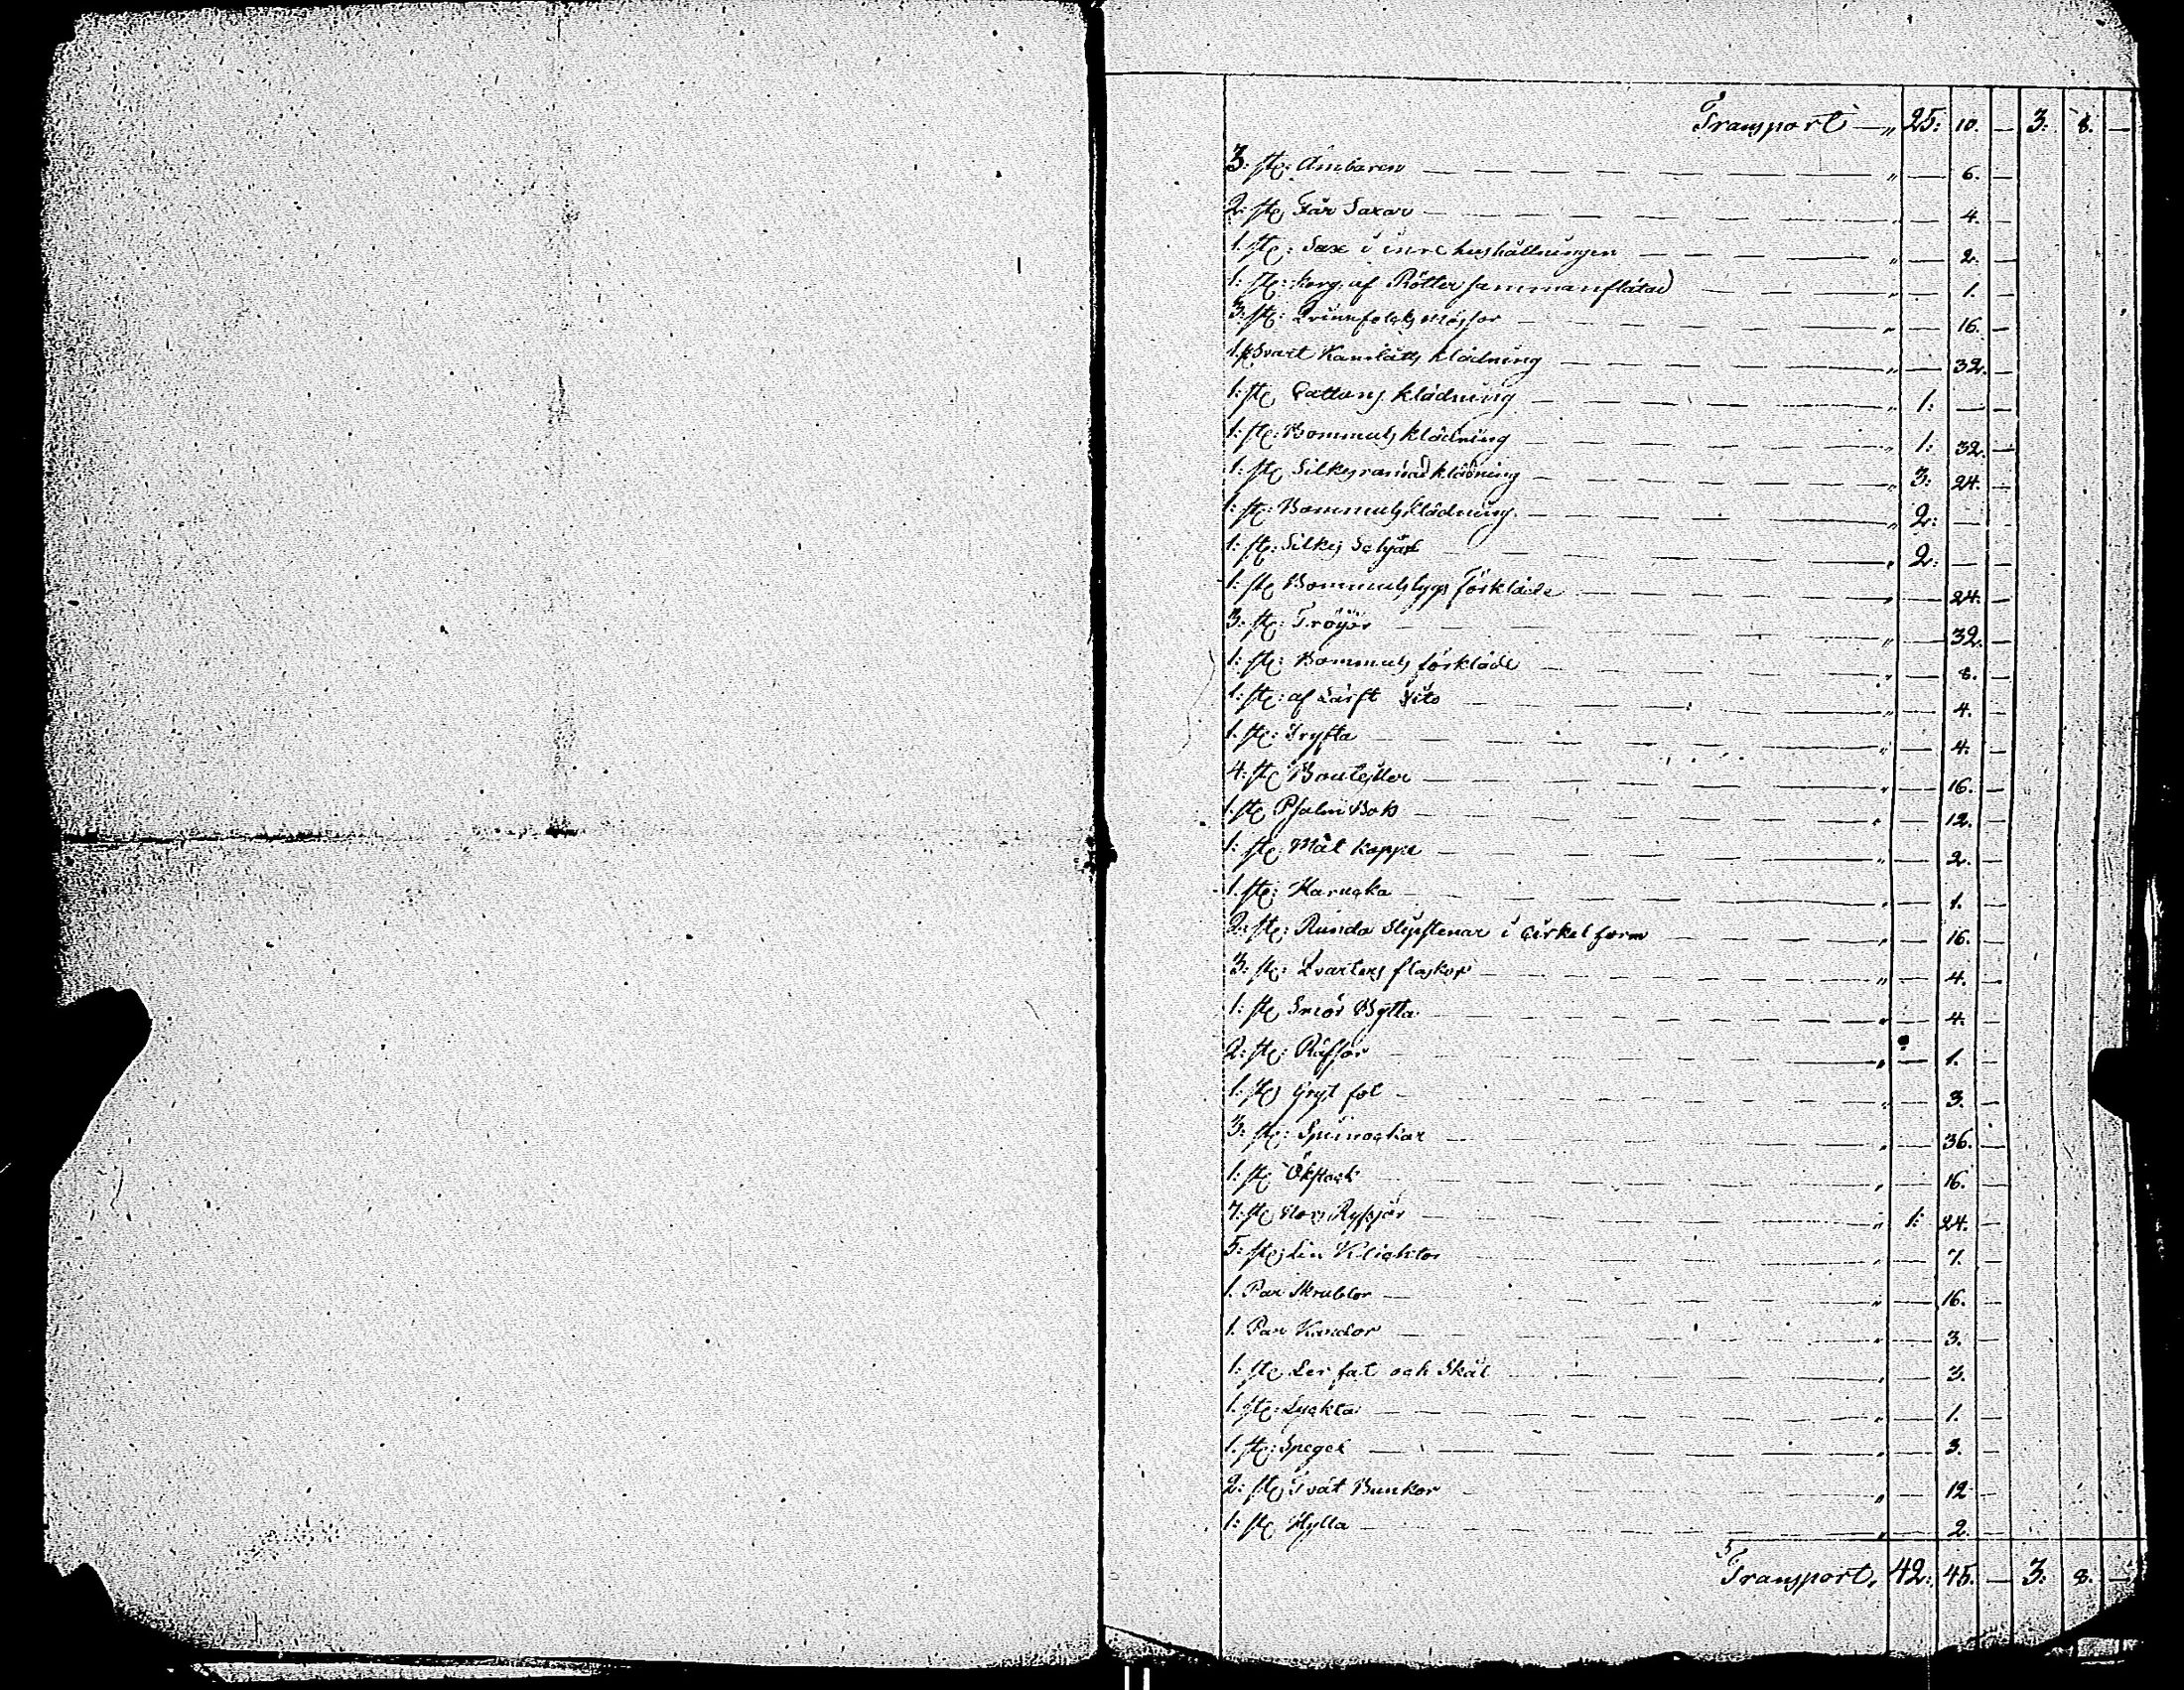 Transport — „ 25: 10. — 3: 8. —
3: st: Ämbaren — „ — 6. —
2: st: Får Saxar — „ — 4. —
1. st: Sax i inre hushållningen — „ — 2. —
1: st: korg af Rötter sammanflätad — „ — 1. —
3: st: Qvinnfolks Mössor — „ — 16. —
1. st Svart Kamlåtts klädning — „ — 32. —
1: st Cattuns klädning — „ 1: — —
1: st: Bommuls klädning — „ 1: 32. —
1: st klädning — „ 3: 24. —
1: st: Bommuls klädning — „ 2: — —
1: st: Silkes — „ 2: — —
1: st Bommulstygs förkläde — „ — 24. —
3: st: Tröjor — „ — 32. —
1: st: Bommuls förkläde — „ — 8. —
1: st: af Lärft dito — „ — 4. —
1. st: — „ — 4. —
4: st Bouteiller — „ — 16. —
1. st Psalm Bok — „ — 12. —
1: st Mål kappe — „ — 2. —
1. st: Haruska — „ — 1. —
2: st: Runda Slipstenar i Cirkel form — „ — 16. —
3: st: Qvarters flaskor — „ — 4. —
1: st Smör Bytta — „ — 4. —
2: st: Räfsor — „ — 1. —
1: st Gryt fot — „ — 3. —
3: st: Spinrockar — „ — 36. —
1: st Ökstock — „ — 16. —
7: st Ryssjor — „ 1: 24. —
5: st: Lin Klicktor — „ — 7. —
1. Par Skrubbor — „ — 16. —
1. Par Kardor — „ — 3. —
1: st Ler fat och Skål — „ — 3. —
1. st: Lyckta — „ — 1. —
1. st: Spegel — „ — 3. —
2: st Tvät Bunkor — „ — 12 —
1: st Hylla — „ — 2. —
Transport, 42: 45. — 3: 8. —